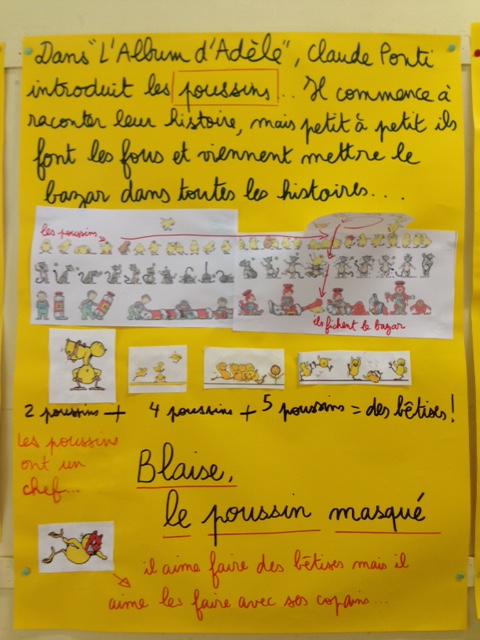 Dans "L'Album d'Adèle", Claude Ponti
introduit les poussins... Il commence à
raconter leur histoire, mais petit à petit ils
font les fous et viennent mettre le
bazar dans toutes les histoires...
les poussins
ils fichent le bazar
2 poussins + 4 poussins + 5 poussins = des bêtises!
Les poussins
ont un
chef...
Blaise,
le poussin masqué
il aime faire des bêtises mais il
aime les faire avec ses copains...